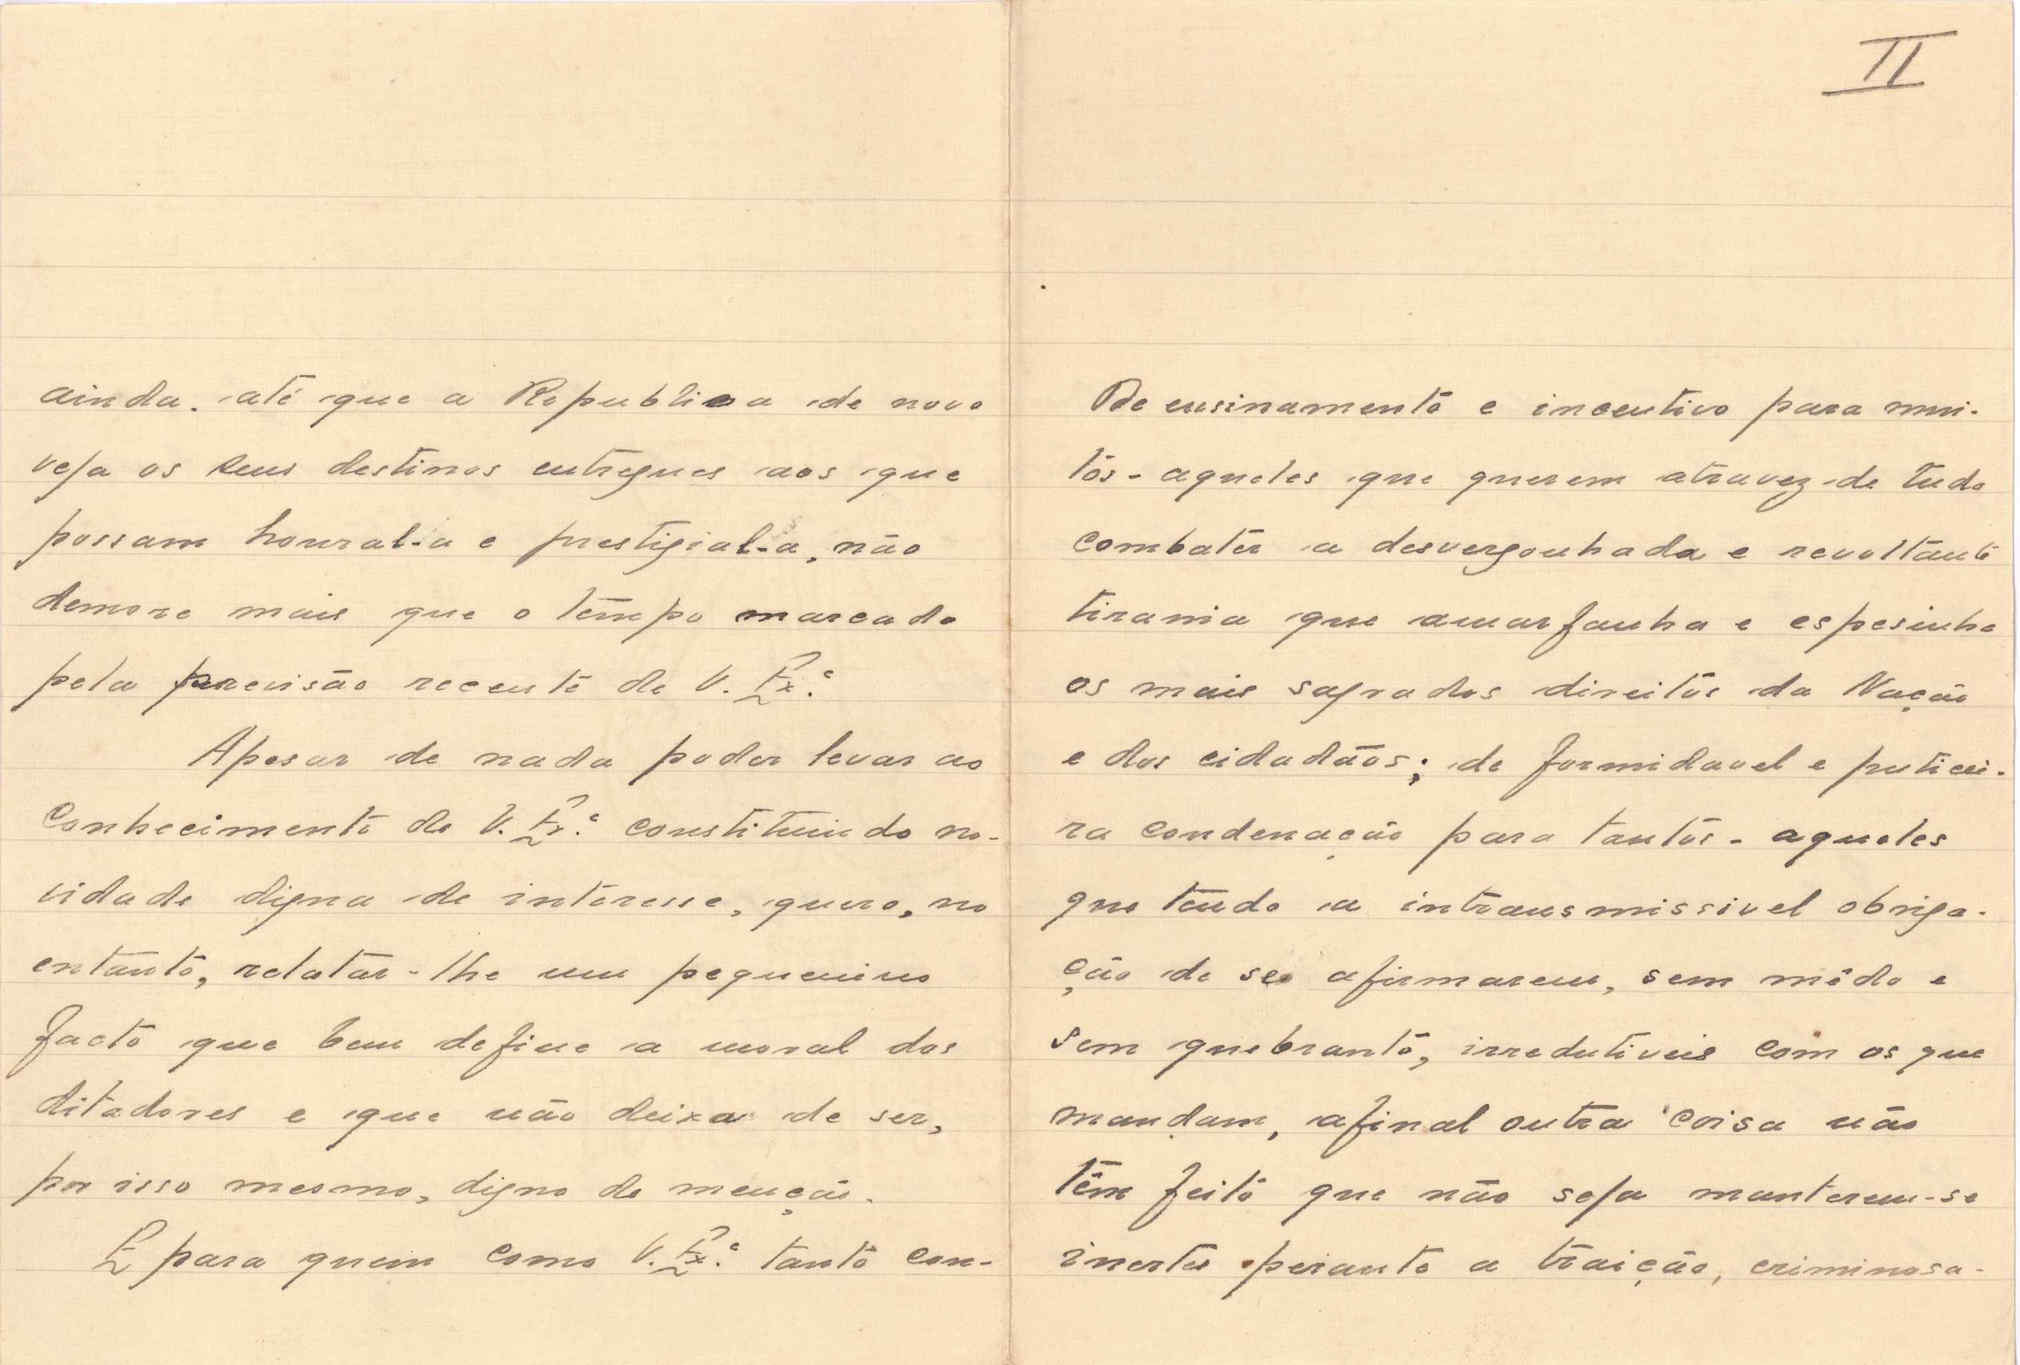 ainda. até que a Republica de novo
veja os seus destinos entregues aos que
possam honral-a e prestigial-a, não
demore mais que o tempo marcado
pela previsão recente de V. Ex.ª
Apesar de nada poder levar ao
conhecimento de V. Ex.ª constituindo no-
vidade digna de interesse, quero, no
entanto, relatar-lhe um pequenino
facto que bem define a moral dos
ditadores e que não deixa de ser,
por isso mesmo, digno de menção.
E para quem como V. Ex.ª tanto con-
II
De ensinamento e incentivo para mui-
tos - aqueles que querem atravez de tudo
combater a desvergonhada e revoltante
tirania que amarfanha e espesinha
os mais sagrados direitos da Nação
e dos cidadãos; de formidavel e
ra condenação para tantos - aqueles
que tendo a intransmissivel obriga-
ção de se afirmarem, sem mêdo e
sem quebranto, irredutiveis com os que
mandam, afinal outra coisa não
têm feito que não seja manterem-se
inertes perante a traição, criminosa-